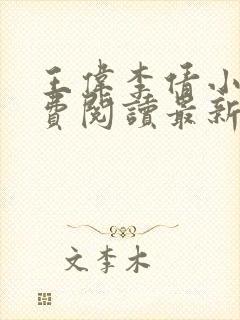 王偉李倩小
費閱讀最新
文李木